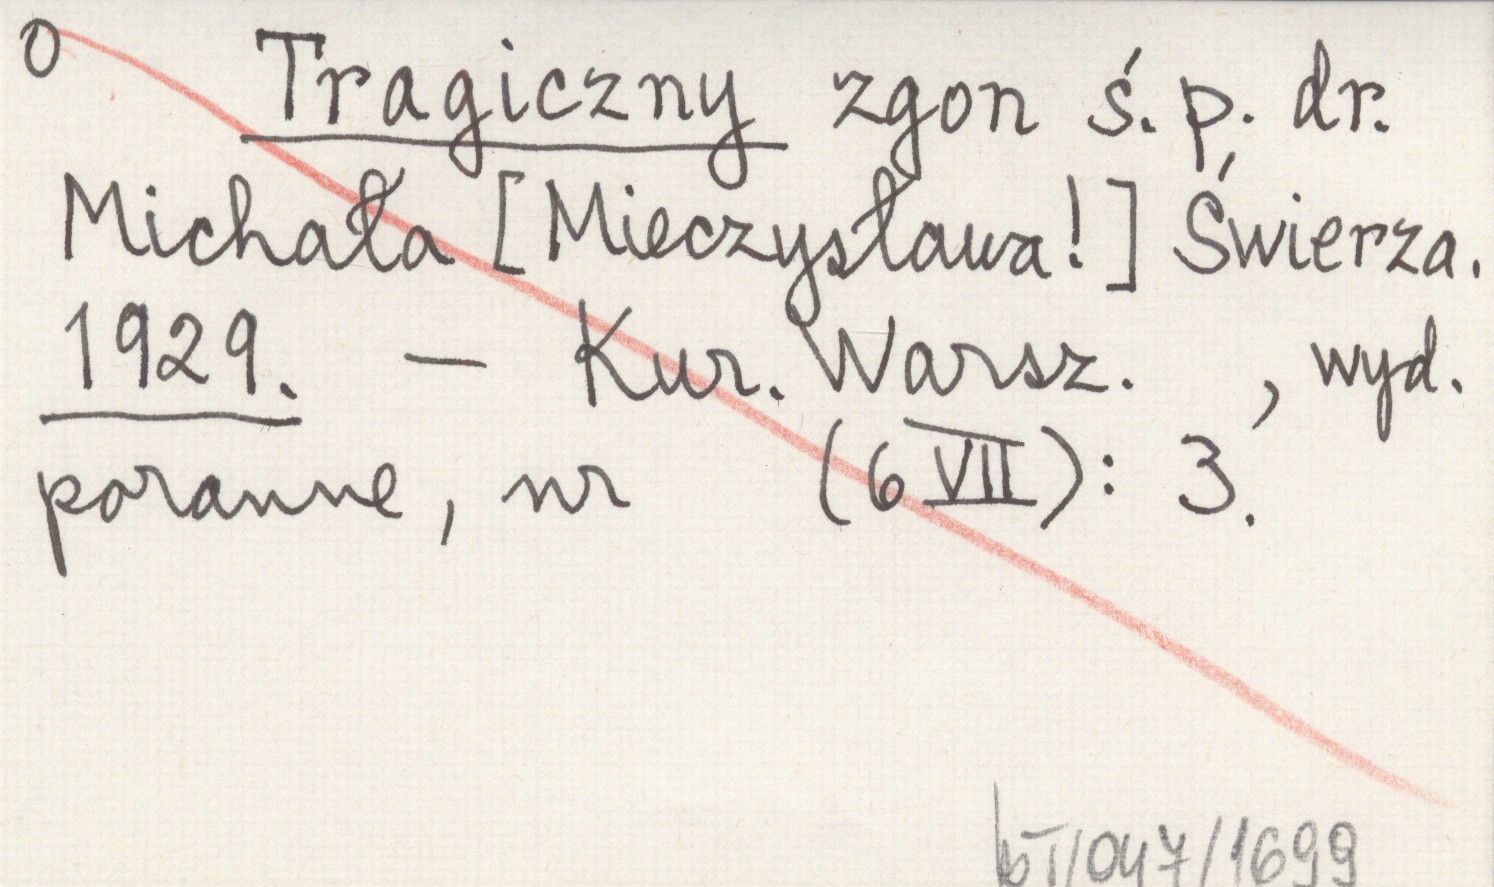 O Tragiczny zgon ś.p. dr.
Michała [Mieczysława!] Świerza.
1929. — Kur. Warsz. , wyd.
poranne, nr (6 VII): 3.
/047/1699